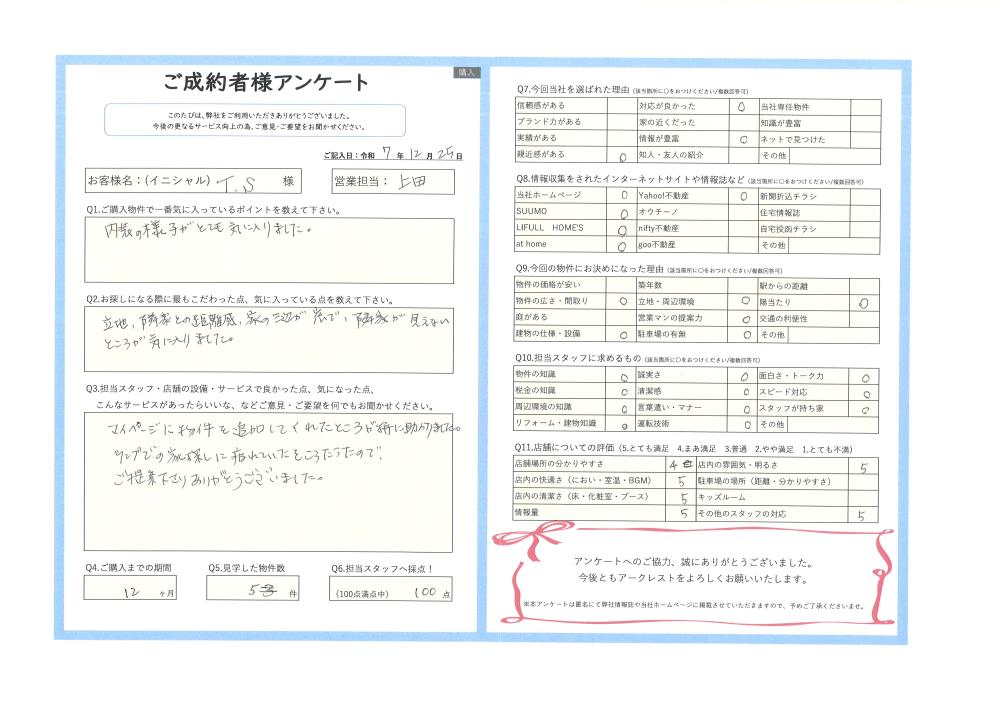 購入
ご成約者様アンケート
このたびは、弊社をご利用いただきありがとうございました。
今後の更なるサービス向上の為、ご意見・ご要望をお聞かせください。
ご記入日：令和 7 年 12 月 25 日
お客様名：(イニシャル) T.S 様
営業担当：上田
Q1.ご購入物件で一番気に入っているポイントを教えて下さい。
内装の様子がとても気に入りました。
Q2.お探しになる際に最もこだわった点、気に入っている点を教えて下さい。
立地、隣家との距離感、家の三辺が崖で、隣家が見えない
ところが気に入りました。
Q3.担当スタッフ・店舗の設備・サービスで良かった点、気になった点、
こんなサービスがあったらいいな、などご意見・ご要望を何でもお聞かせください。
マイページに物件を追加してくれたところが特に助かりました。
の家探しに疲れていたところだったので、
ご提案下さりありがとうございました。
Q4.ご購入までの期間
12 ヶ月
Q5.見学した物件数
5 件
Q6.担当スタッフへ採点！
(100点満点中) 100 点
Q7.今回当社を選ばれた理由（該当箇所に○をおつけください/複数回答可）
信頼感がある 対応が良かった ○ 当社専任物件
ブランド力がある 家の近くだった 知識が豊富
実績がある 情報が豊富 ○ ネットで見つけた
親近感がある ○ 知人・友人の紹介 その他
Q8.情報収集をされたインターネットサイトや情報誌など（該当箇所に○をおつけください/複数回答可）
当社ホームページ ○ Yahoo!不動産 ○ 新聞折込チラシ
SUUMO ○ オウチーノ 住宅情報誌
LIFULL HOME'S ○ nifty不動産 自宅投函チラシ
at home ○ goo不動産 その他
Q9.今回の物件にお決めになった理由（該当箇所に○をおつけください/複数回答可）
物件の価格が安い 築年数 駅からの距離
物件の広さ・間取り ○ 立地・周辺環境 ○ 陽当たり ○
庭がある 営業マンの提案力 ○ 交通の利便性
建物の仕様・設備 ○ 駐車場の有無 ○ その他
Q10.担当スタッフに求めるもの（該当箇所に○をおつけください/複数回答可）
物件の知識 ○ 誠実さ ○ 面白さ・トーク力 ○
税金の知識 ○ 清潔感 ○ スピード対応 ○
周辺環境の知識 ○ 言葉遣い・マナー ○ スタッフが持ち家 ○
リフォーム・建物知識 ○ 運転技術 ○ その他
Q11.店舗についての評価（5.とても満足 4.まあ満足 3.普通 2.やや満足 1.とても不満）
店舗場所の分かりやすさ 4 店内の雰囲気・明るさ 5
店内の快適さ（におい・室温・BGM） 5 駐車場の場所（距離・分かりやすさ）
店内の清潔さ（床・化粧室・ブース） 5 キッズルーム
情報量 5 その他のスタッフの対応 5
アンケートへのご協力、誠にありがとうございました。
今後ともアークレストをよろしくお願いいたします。
※本アンケートは匿名にて弊社情報誌や当社ホームページに掲載させていただきますので、予めご了承くださいませ。